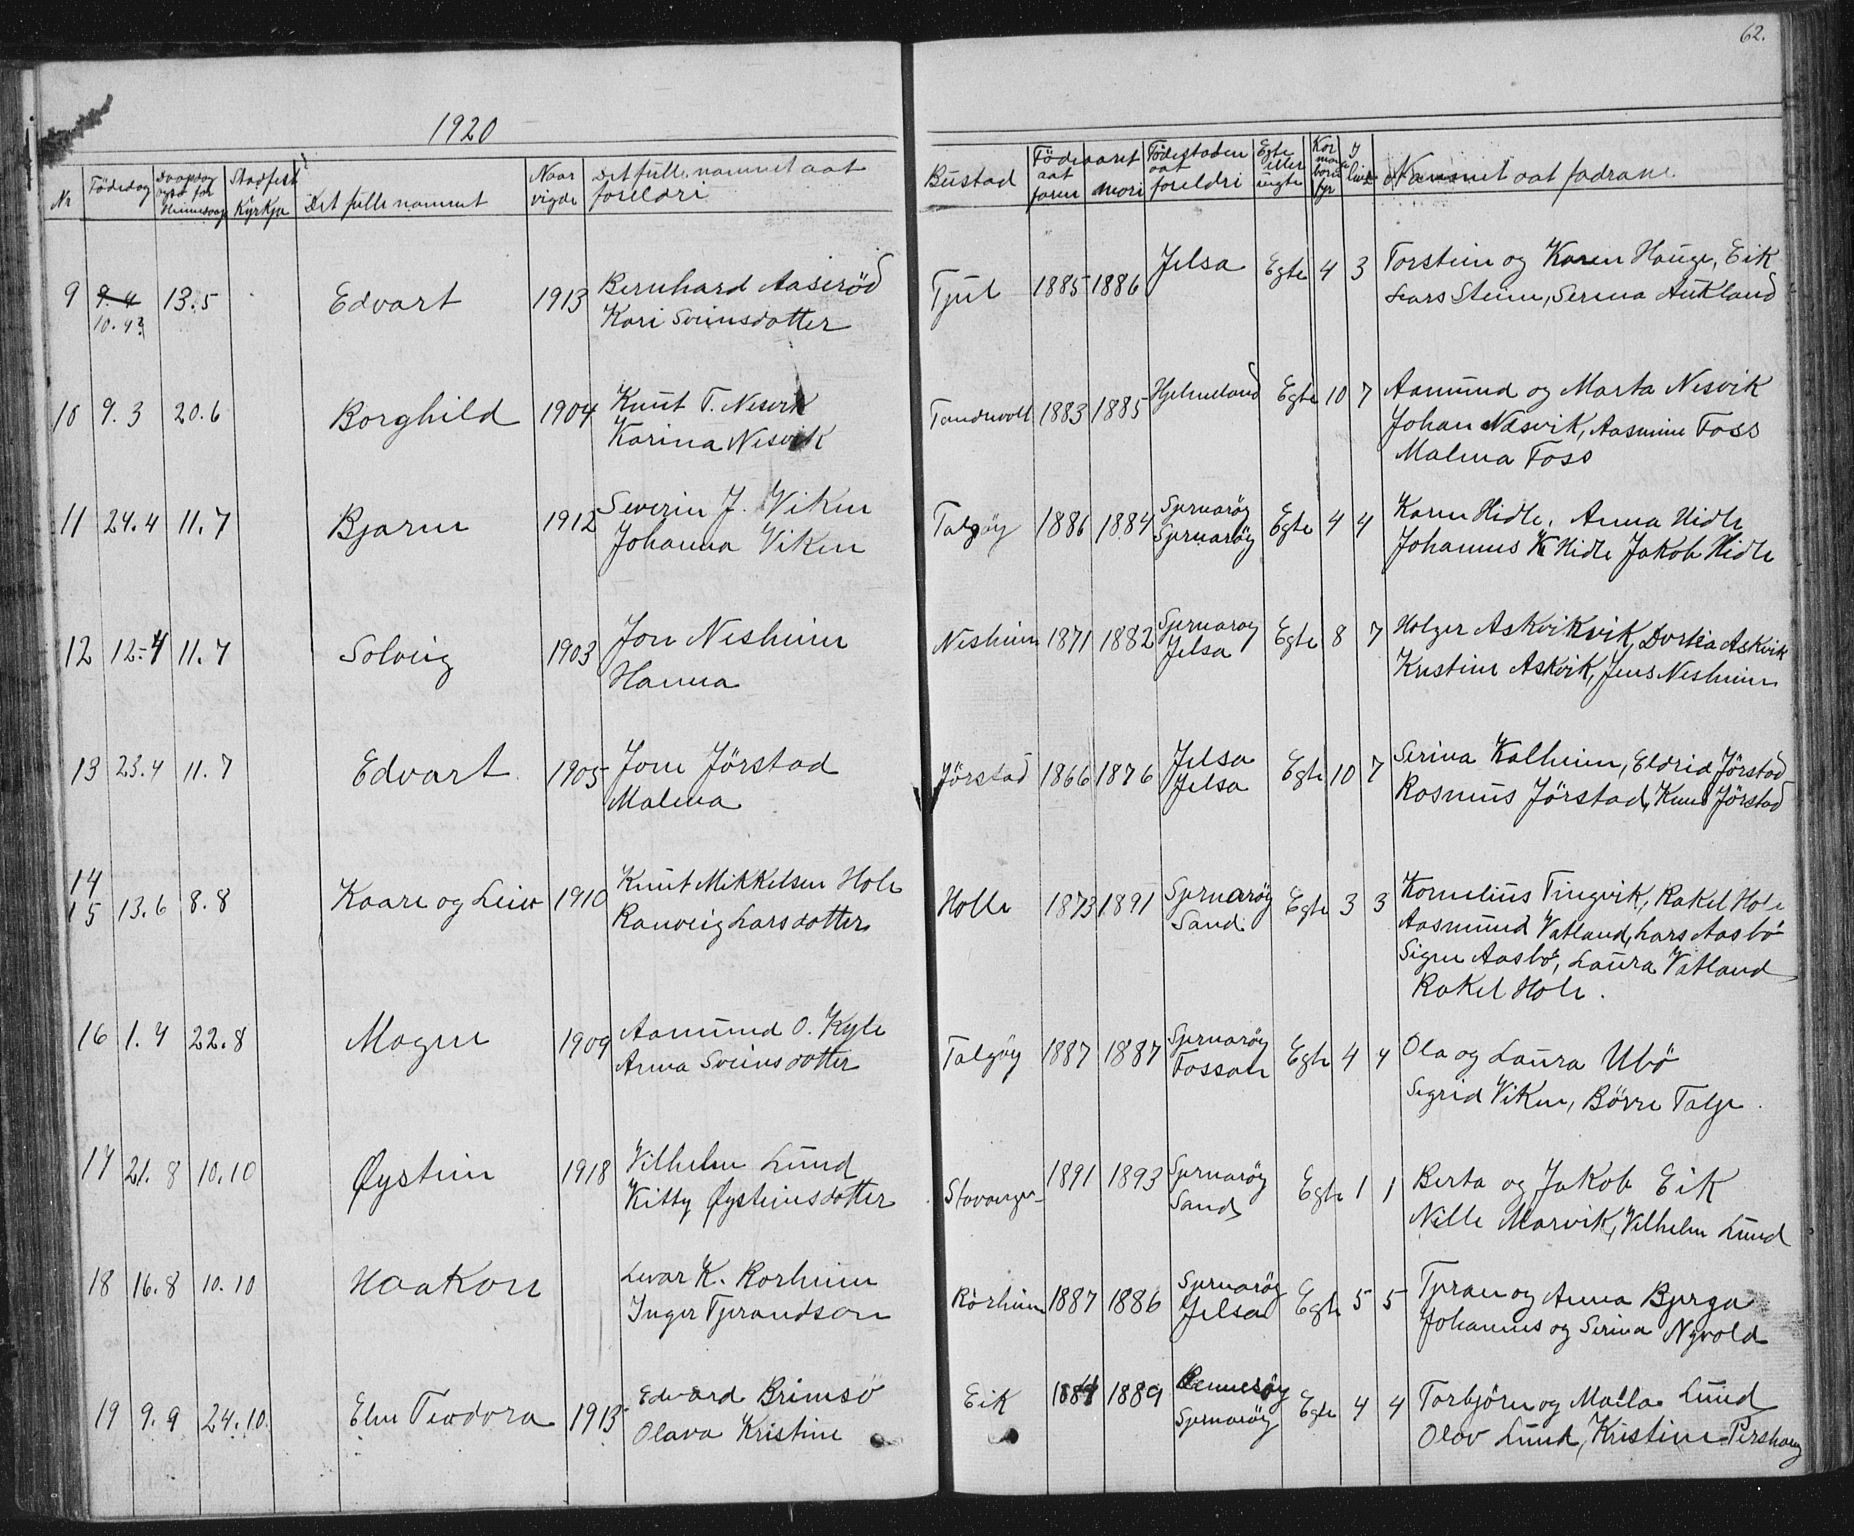 62.
1920
Nr Födedag Daapsdag Stadfest i Kyrkja Det fulle nammet Naar vigde Det fulle nammet aat foreldri Bustad Födeaaret aat faren mori Födestaden aat foreldri Egte eller uegte Kor mange born fyr I live Nammet aat fadrane
9 9.4 13.5 Edvart 1913 Bernhard Aaseröd Tjul 1885 1886 Jelsa Egte 4 3 Torstein og Karen Hauge, Eik
10.4? Kari Sveinsdotter Lars Steine, Serina Aukland
10 9.3 20.6 Borghild 1904 Knut T. Nesvik 1883 1885 Hjelmeland Egte 10 7 Aamund og Marta Nesvik
Karina Nesvik Johan Nesvik, Aasmine Foss
Malena Foss
11 24.4 11.7 Bjarne 1912 Severin J. Viken Talgöy 1886 1884 Sjernaröy Egte 4 4 Karen Hidle, Anna Hidle
Johanna Viken Sjernaröy Johannes K Hidle Jakob Hidle
12 12.4 11.7 Solveig 1903 Jon Nesheim Nesheim 1871 1882 Sjernaröy Egte 8 7 Holger Askvikvik, Dortia Askvik
Hanna Jelsa Kristine Askvik, Jens Nesheim
13 23.4 11.7 Edvart 1905 Jone Jörstad Jörstad 1866 1876 Jelsa Egte 10 7 Serina Kalheim, Eldrid Jörstad
Malena Jelsa Rasmus Jörstad, Knud Jörstad
14
15 13.6 8.8 Kaare og Leiv 1910 Knut Mikkelsen Hole Holle 1873 1891 Sjernaröy Egte 3 3 Kornelius Tingvik, Rakel Hole
Ranveig Larsdotter Sand Aasmund Vatland, Lars Aasbö
Signe Aasbö, Laura Vatland
Rakel Hole.
16 1.4 22.8 Magne 1909 Aamund O. Kyle Talgöy 1887 1887 Sjernaröy Egte 4 4 Ola og Laura Ubö
Anna Sveinsdotter Fossan Sigrid Viken, Börre Talge.
17 21.8 10.10 Øystein 1918 Vilhelm Lund Stavanger 1891 1893 Sjernaröy Egte 1 1 Berta og Jakob Eik
Kitty Øysteinsdotter Sand Nille Marvik, Vilhelm Lund
18 16.8 10.10 Haakon Ivar K. Rorheim Rörheim 1887 1886 Sjernaröy Egte 5 5 Tjeran og Anna Bjerga
Inger Tjerandsen Jelsa Johannes og Serina Nyvold
19 9.9 24.10. Elen Teodora 1913 Edvard Brimsö Eik 1889 Rennesöy Egte 4 4 Torbjörn og Malla Lund
Olava Kristine Sjernaröy Olav Lund, Kristine Pershaug